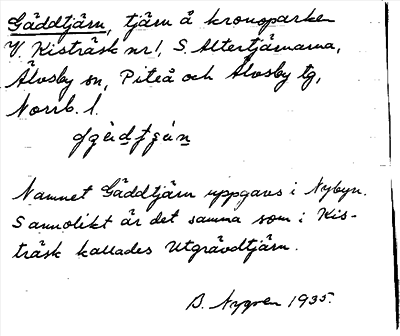 Gäddtjärn, tjärn å kronoparken
V. Kisträsk nr 1, S. Altertjärnarna,
Älvsby sn, Piteå och Älvsby tg,
Norrb. l.
Namnet Gäddtjärn uppgavs i Nybyn.
Sannolikt är det samma som i Kis-
träsk kallades Utgrävdtjärn.
B. Nygren 1935.